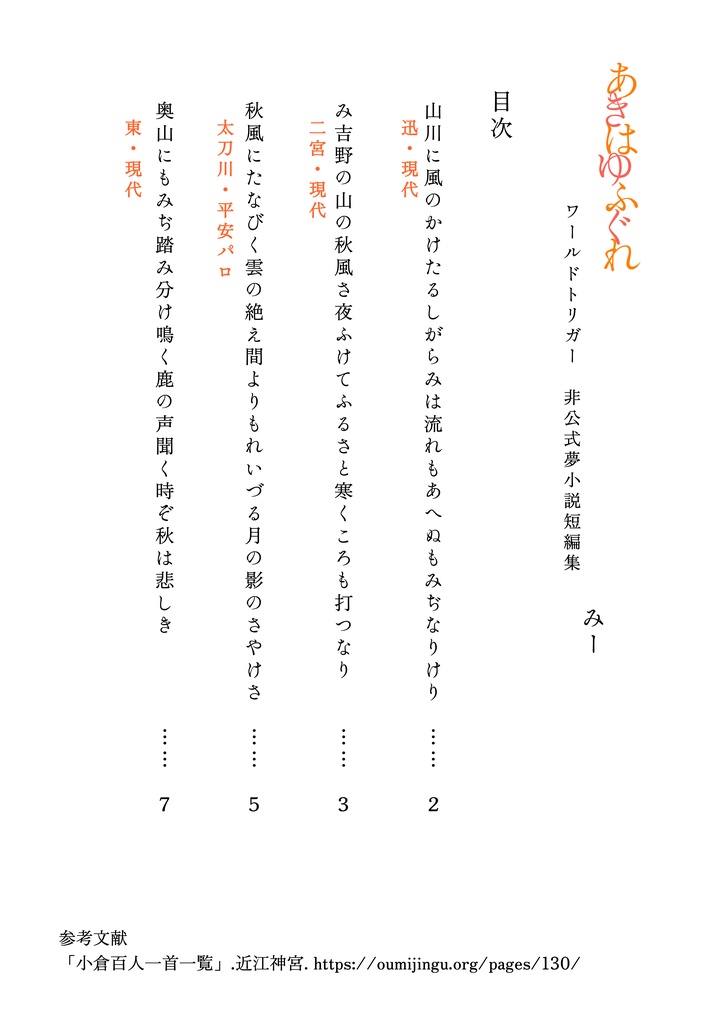 あきはゆふぐれ
ワールドトリガー 非公式夢小説短編集
みー
目次
山川に風のかけたるしがらみは流れもあへぬもみぢなりけり …… 2
迅・現代
み吉野の山の秋風さ夜ふけてふるさと寒くころも打つなり …… 3
二宮・現代
秋風にたなびく雲の絶え間よりもれいづる月の影のさやけさ …… 5
太刀川・平安パロ
奥山にもみぢ踏み分け鳴く鹿の声聞く時ぞ秋は悲しき …… 7
東・現代
参考文献
「小倉百人一首一覧」.近江神宮. https://oumijingu.org/pages/130/